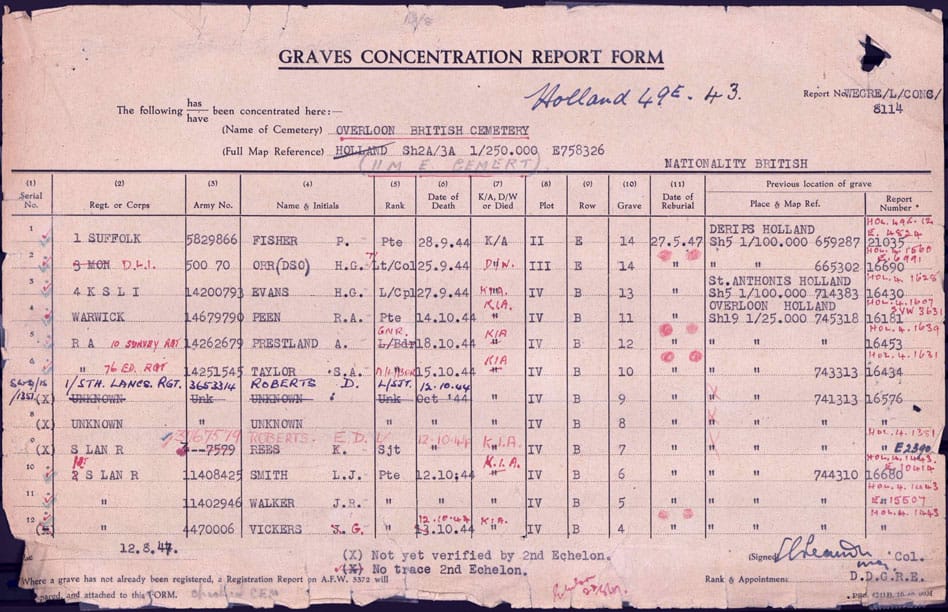 GRAVES CONCENTRATION REPORT FORM
Holland 49E. 43.
Report No. WEGRE/L/CONS/
8114
The following has/have been concentrated here:—
(Name of Cemetery) OVERLOON BRITISH CEMETERY
(Full Map Reference) HOLLAND Sh2A/3A 1/250.000 E758326
NATIONALITY BRITISH
(1) (2) (3) (4) (5) (6) (7) (8) (9) (10) (11) Previous location of grave
Serial No. Regt. or Corps Army No. Name & Initials Rank Date of Death K/A, D/W or Died Plot Row Grave Date of Reburial Place & Map Ref. Report Number
1 1 SUFFOLK 5829866 FISHER P. Pte 28.9.44 K/A II E 14 27.5.47 DERIPS HOLLAND Sh5 1/100.000 659287 21035
2 3 MON D.L.I. 500 70 ORR(DSO) H.G. Lt/Col 25.9.44 III E 14 " " 665302 16690
3 4 K S L I 14200793 EVANS H.G. L/Cpl 27.9.44 K.I.A. IV B 13 " St.ANTHONIS HOLLAND Sh5 1/100.000 714383 16430
4 WARWICK 14679790 PEEN R.A. Pte 14.10.44 K.I.A. " IV B 11 " OVERLOON HOLLAND Sh19 1/25.000 745318 16181
5 R A 10 SURVEY RGT 14262679 PRESTLAND A. GNR. L/Bdr 18.10.44 KIA " IV B 12 " " " 16453
6 " 76 FD. RGT 14251545 TAYLOR S.A. 15.10.44 KIA " IV B 10 " " " 743313 16434
1/STH. LANCS. RGT. 3653314 ROBERTS D. L/SJT. 12.10.44
(X) UNKNOWN Unk UNKNOWN Unk Oct '44 " IV B 9 " " " 741313 16576
8 (X) UNKNOWN " UNKNOWN " " " IV B 8 " " " " "
3767579 ROBERTS. E.D. 12-10-44
9 (X) S LAN R ---7579 REES K. Sjt " K.I.A. " IV B 7 " " " " " E2390
10 2 S LAN R 11408425 SMITH L.J. Pte 12.10.44 K.I.A. " IV B 6 " " " 744310 16680
11 " 11402946 WALKER J.R. " " " IV B 5 " " " " " 15507
12 (X) " 4470006 VICKERS J.G. " 12.10.44 13.10.44 KIA. " IV B 4 " " " " "
12.8.47.
(X) Not yet verified by 2nd Echelon.
(X) No trace 2nd Echelon.
(Signed) Col.
Where a grave has not already been registered, a Registration Report on A.F.W. 3372 will
Rank & Appointment D.D.G.R.E.
and attached to this FORM.